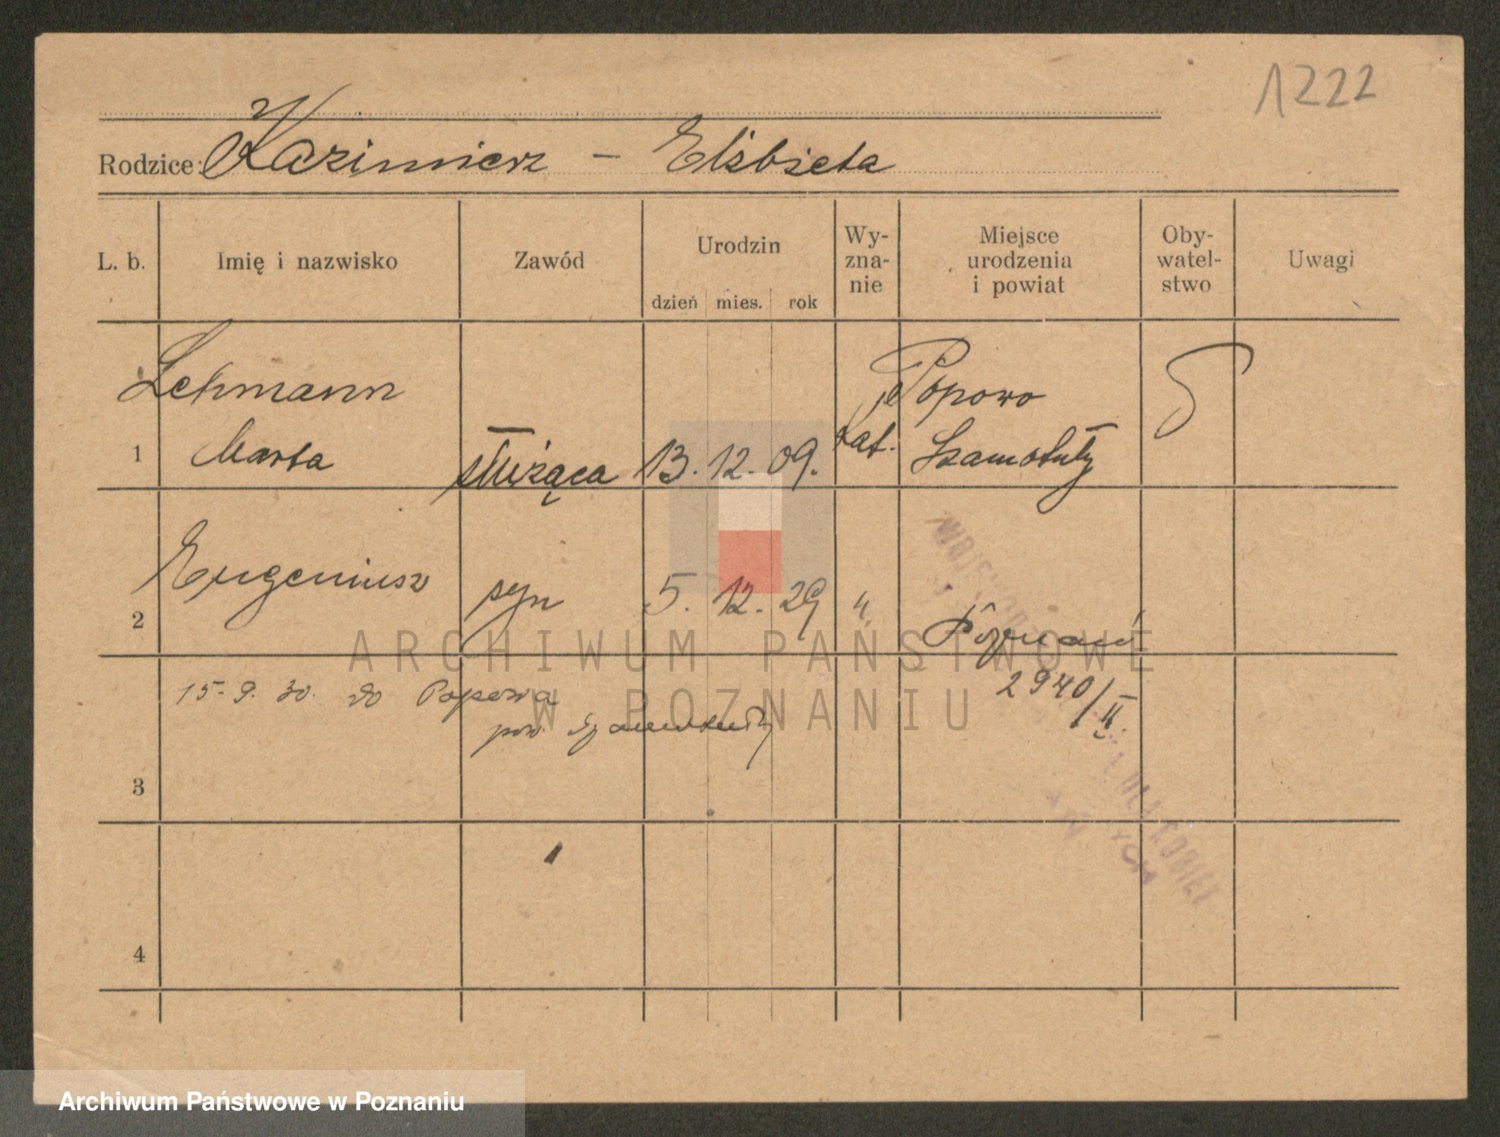 1222
Rodzice: Kazimierz – Elżbieta
L. b. Imię i nazwisko Zawód Urodzin Wy-zna-nie Miejsce urodzenia i powiat Oby-watel-stwo Uwagi
dzień mies. rok
Lehmann Popowo
1 Marta służąca 13. 12. 09. kat. Szamotuły
2 Eugeniusz syn 5. 12. 29 " Poznań
ARCHIWUM PAŃSTWOWE
W POZNANIU
15. 9. 30. do Popowa 2940/II
pow. Szamotuły
3
4
Archiwum Państwowe w Poznaniu